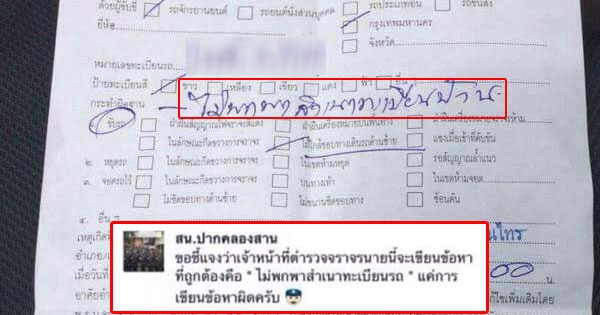 ด้วยผู้ขับขี่ รถจักรยานยนต์ รถยนต์นั่งส่วนบุคคล รถประเภทอื่น
ยี่ห้อ กรุงเทพมหานคร
จังหวัด
หมายเลขทะเบียนรถ
ป้ายทะเบียนสี ขาว เหลือง เขียว แดง ฟ้า อื่น
- ไม่พกพาสำเนาทะเบียนบ้าน
กระทำผิดฐาน
๑. ขับรถ ฝ่าฝืนสัญญาณไฟจราจรสีแดง ฝ่าฝืนเครื่องหมายบนพื้นทาง
ในลักษณะกีดขวางการจราจร ไม่ใกล้ขอบทางเดินรถด้านซ้าย แซงเมื่อเข้าที่คับขัน
๒. หยุดรถ ในลักษณะกีดขวางการจราจร ในเขตห้ามหยุด รอสัญญาณล้ำแนว
๓. จอดรถไว้ ในลักษณะกีดขวางการจราจร บนทางเท้า ในเขตห้ามจอด
ไม่ชิดขอบทางด้านซ้าย ไม่ขนานชิดขอบทาง ซ้อนคัน
๔. อื่น ๆ
สน.ปากคลองสาน
ขอชี้แจงว่าเจ้าหน้าที่ตำรวจจราจรนายนี้จะเขียนข้อหา
ที่ถูกต้องคือ " ไม่พกพาสำเนาทะเบียนรถ " แค่การ
เขียนข้อหาผิดครับ